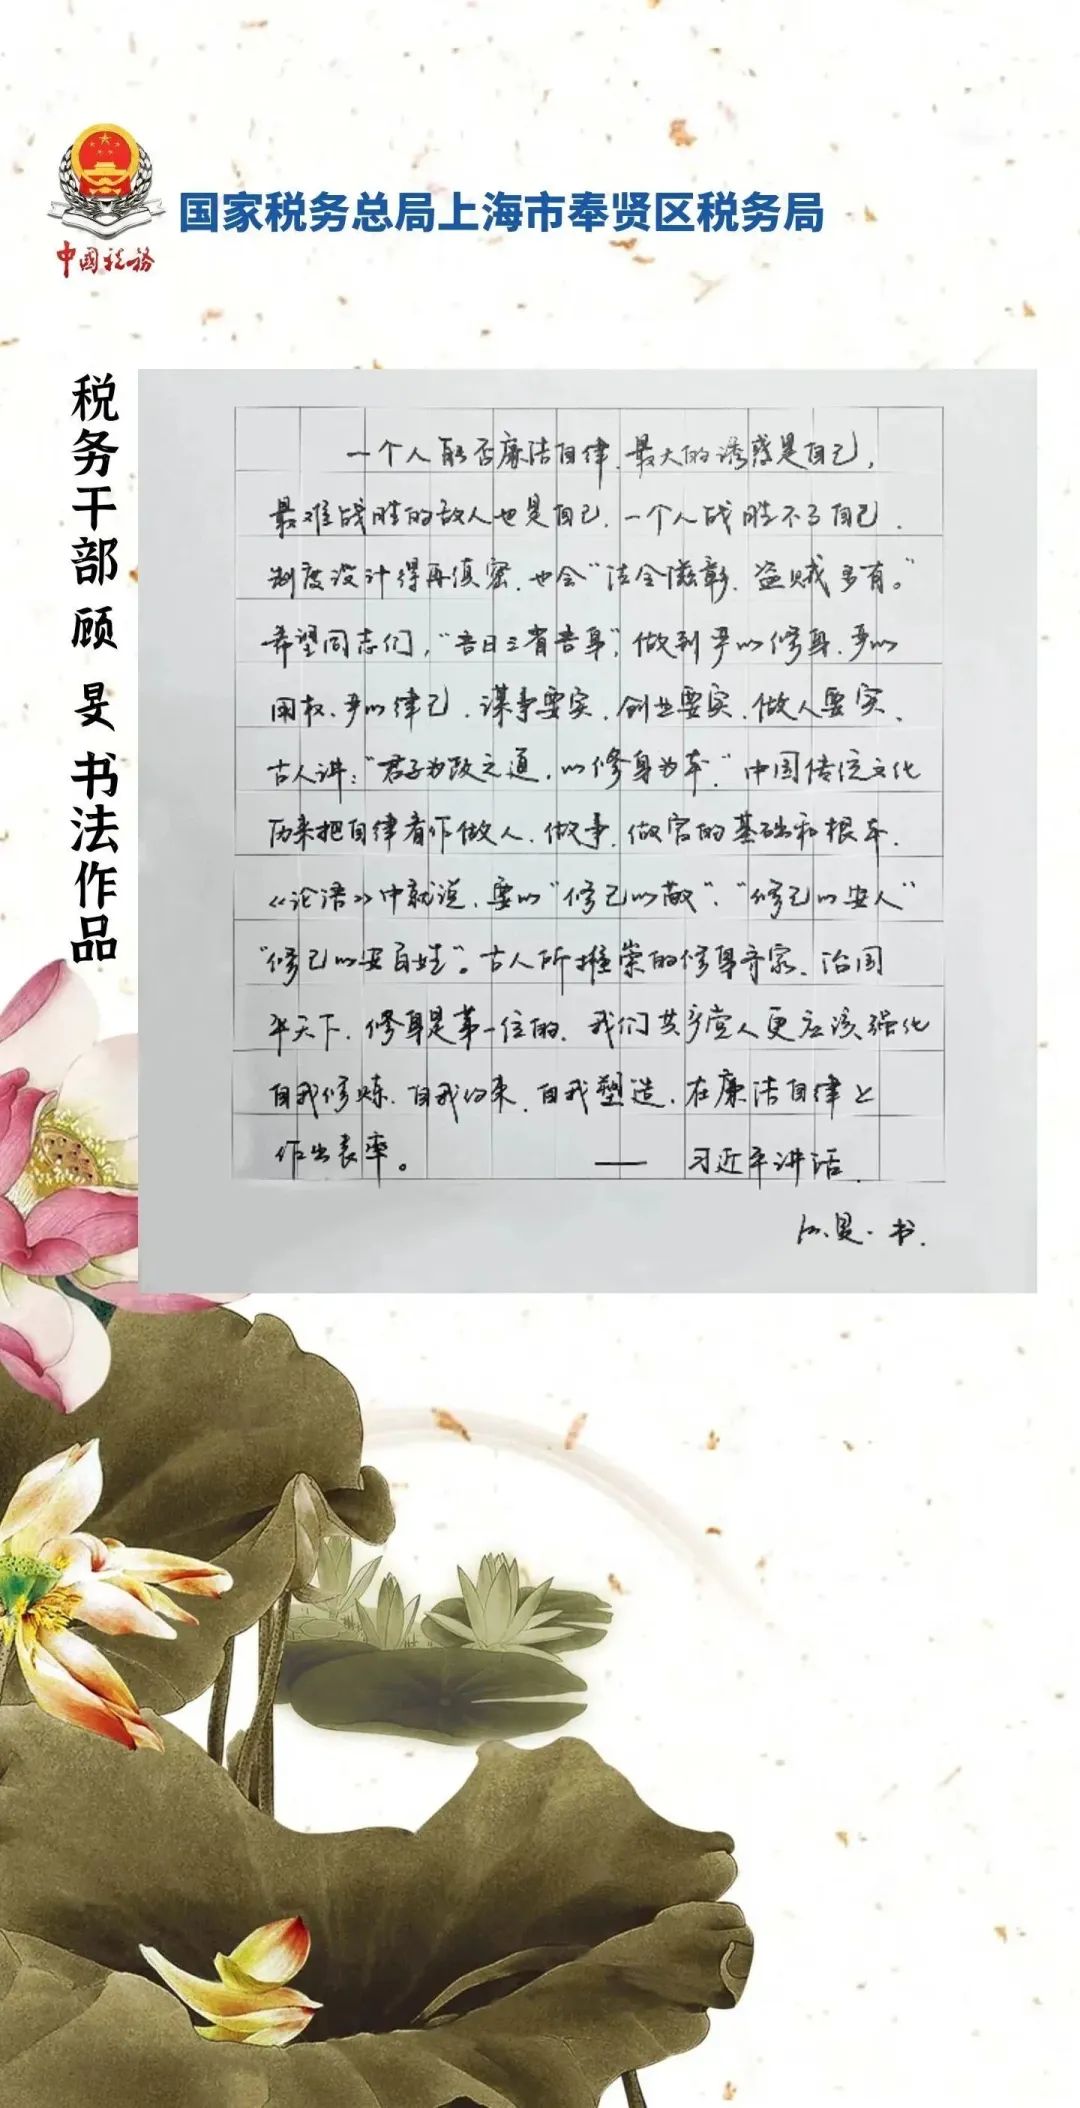 中国税务
国家税务总局上海市奉贤区税务局
税务干部 顾 旻 书法作品
一个人能否廉洁自律.最大的诱惑是自己,
最难战胜的敌人也是自己.一个人战胜不了自己.
制度设计得再缜密.也会“法令滋彰.盗贼多有。”
希望同志们,“吾日三省吾身”,做到严以修身.严以
用权、严以律己.谋事要实.创业要实.做人要实.
古人讲:“君子为政之道.以修身为本.”中国传统文化
历来把自律看作做人.做事.做官的基础和根本.
《论语》中就说.要以“修己以敬”.“修己以安人”
“修己以安百姓”。古人所推崇的修身齐家.治国
平天下.修身是第一位的.我们共产党人更应该强化
自我修炼.自我约束.自我塑造.在廉洁自律上
作出表率。 —— 习近平讲话.
旻.书.